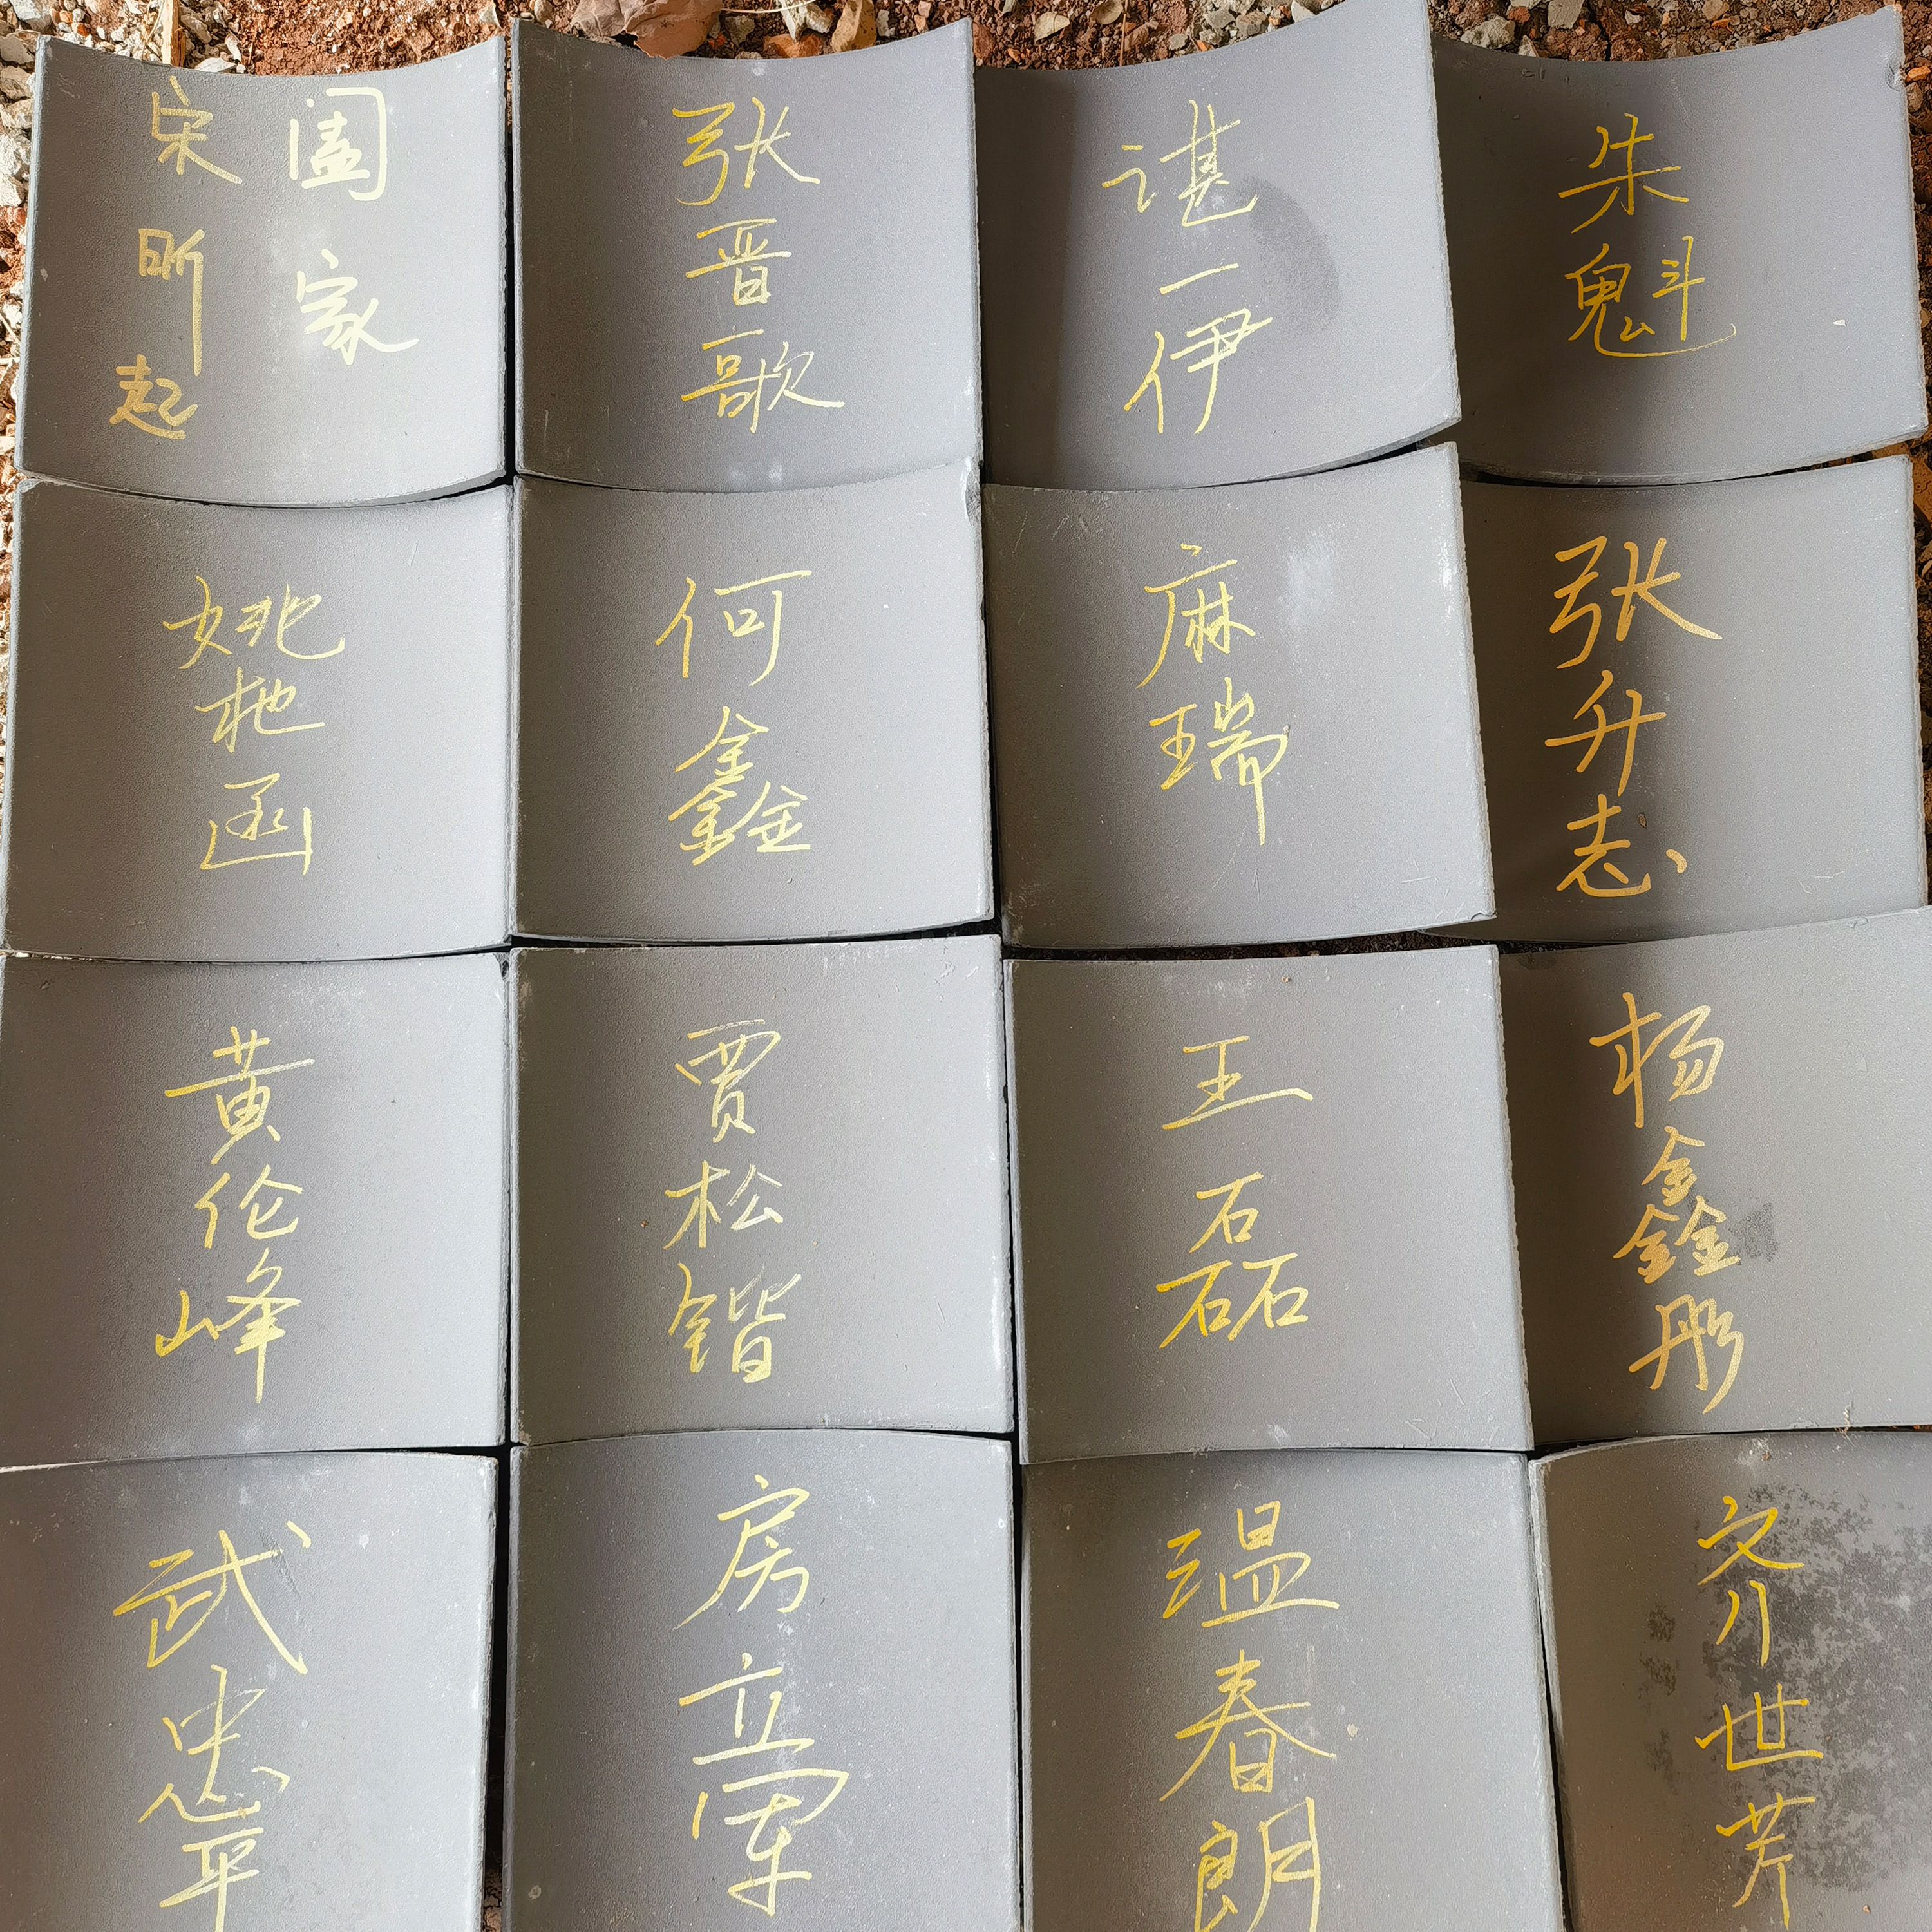 宋昕起
阖家
张晋歌
谌一伊
朱魁
姚杝函
何鑫
麻瑞
张升志
黄伦峰
贾松锴
王磊
杨鑫彤
武忠平
房立军
温春朗
齐世芹